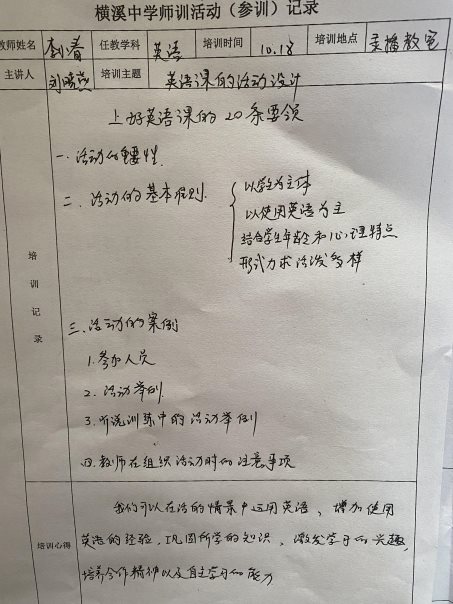 横溪中学师训活动（参训）记录
教师姓名 李春 任教学科 英语 培训时间 10.18 培训地点 录播教室
主讲人 培训主题 英语课的活动设计
上好英语课的20条要领
一、活动的重要性
二、活动的基本原则
以学生为主体
以使用英语为主
结合学生年龄和心理特点
形式力求活泼多样
培训记录
三、活动的案例
1.参加人员
2.活动举例
3.听说训练中的活动举例
四.教师在组织活动时的注意事项
培训心得
我们可以在活的情景中运用英语、增加使用
英语的经验，巩固所学的知识、激发学习的兴趣，
培养合作精神以及自主学习的能力